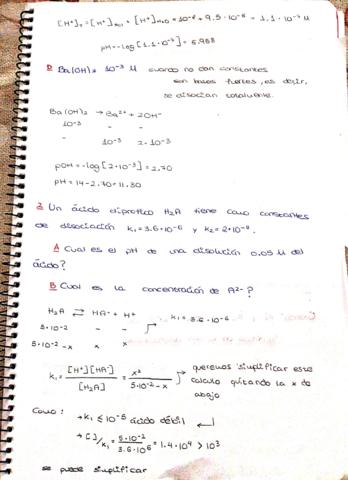 [H+]T = [H+]HCl + [H+]H2O = 10^-6 + 9.5·10^-8 = 1.1·10^-6 M
pH = -log[1.1·10^-6] = 5.958
D Ba(OH)2 10^-3 M cuando no dan constantes
son bases fuertes, es decir,
se disocian totalmente.
Ba(OH)2 → Ba2+ + 2OH-
10^-3 - -
- 10^-3 2·10^-3
pOH = -log[2·10^-3] = 2.70
pH = 14 - 2.70 = 11.30
2 Un ácido diprótico H2A tiene como constantes
de disociación K1 = 3.6·10^-6 y K2 = 2·10^-9.
A Cual es el pH de una disolución 0.05 M del
ácido?
B Cual es la concentración de A2-?
H2A ⇄ HA- + H+ K1 = 3.6·10^-6
5·10^-2 - -
5·10^-2 - x x x
K1 = [H+][HA-] / [H2A] = x² / 5·10^-2 - x → queremos simplificar este
calculo quitando la x de
abajo
Como: → K1 ≤ 10^-5 ácido débil ↲
→ [ ]/K1 = 5·10^-2 / 3.6·10^6 = 1.4·10^4 > 10^3
se puede simplificar